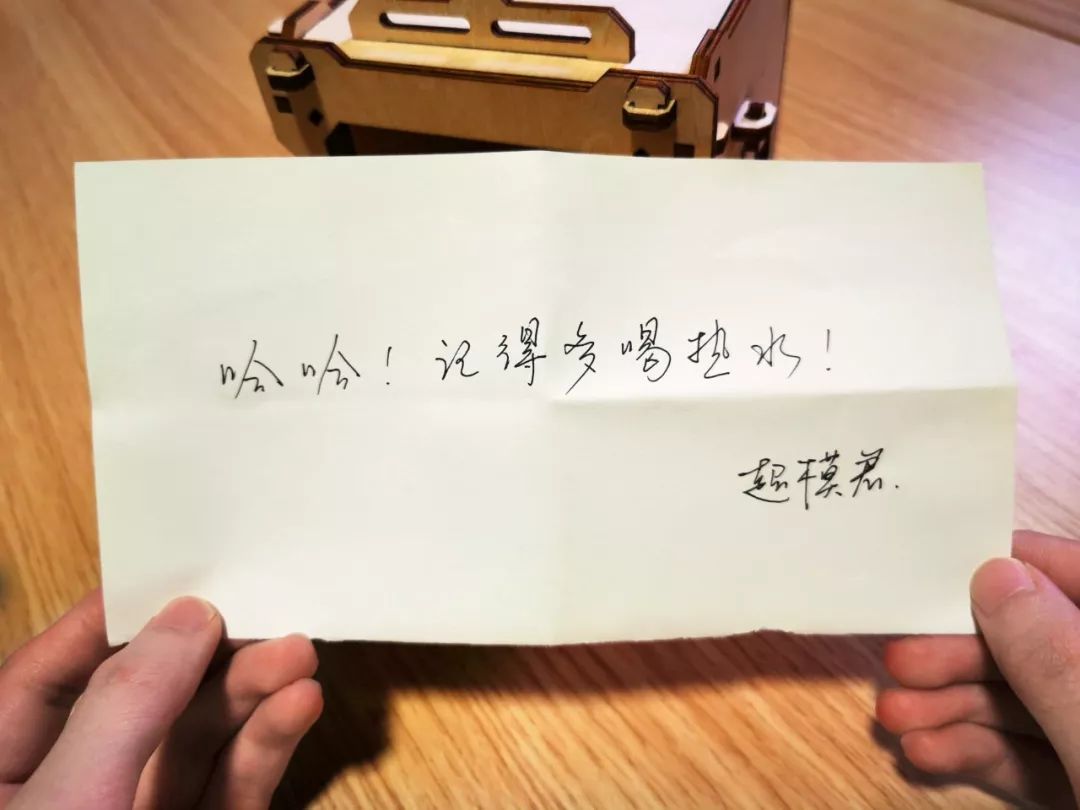 哈哈！记得多喝热水！
超模君.